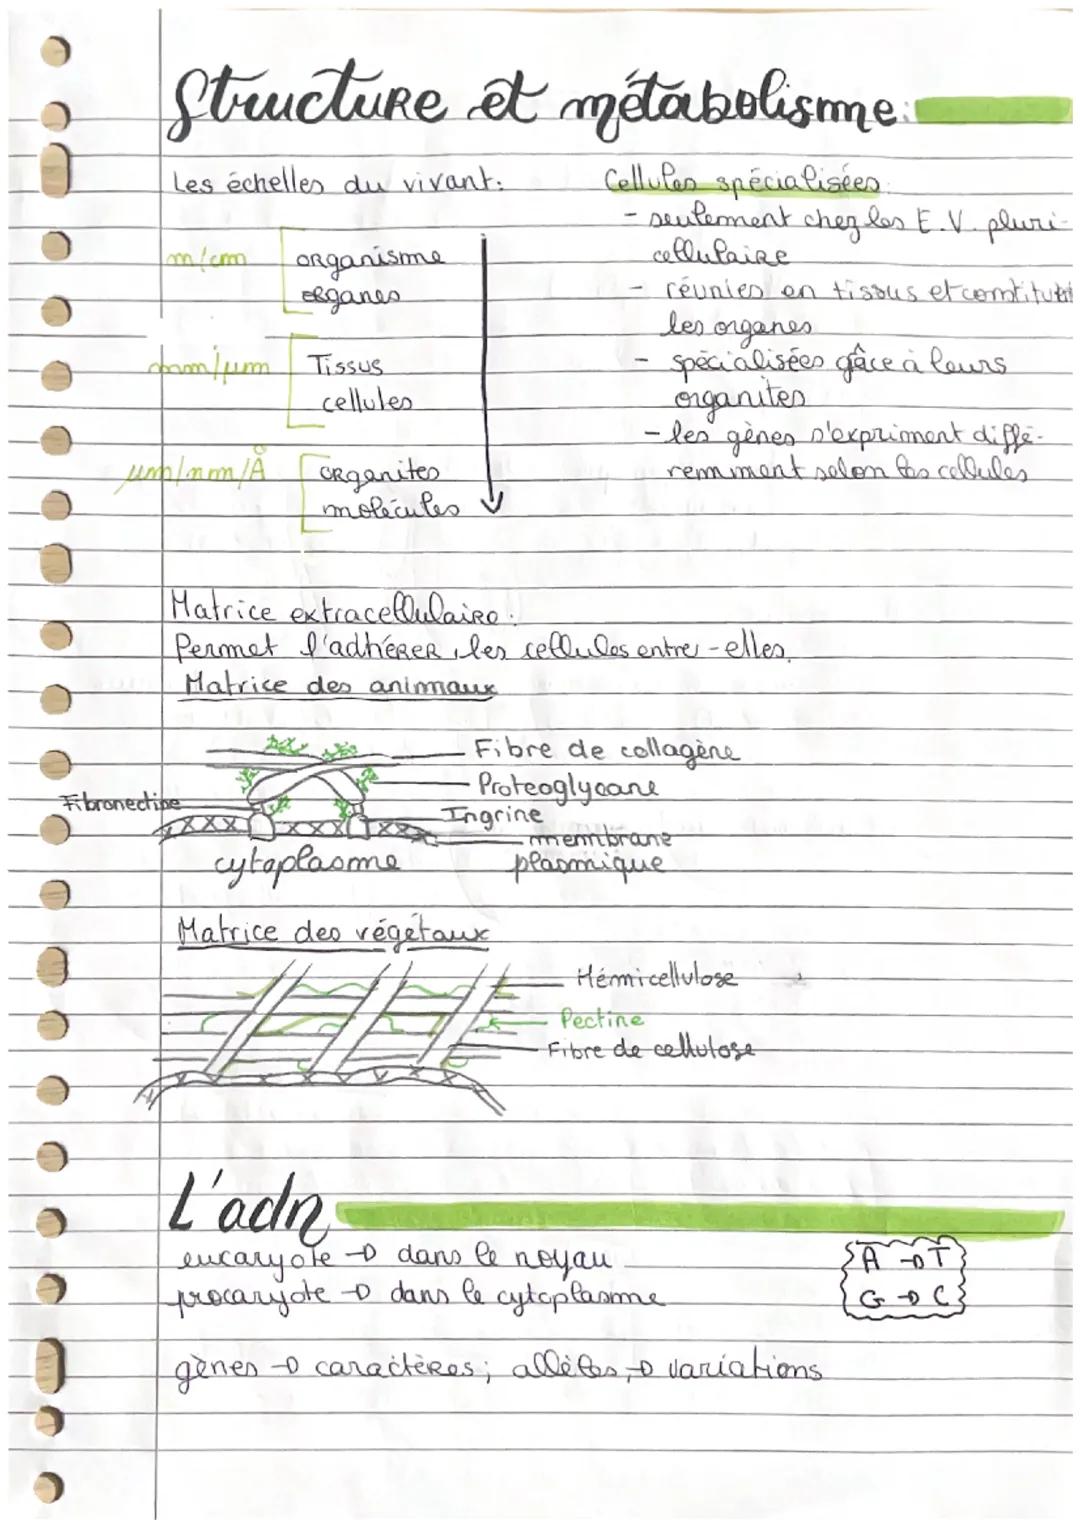 Structure et métabolisme:
Les échelles du vivant:
m/cm
organisme
organes
mm/µm
Tissus
cellules
µm/nm/Å
organites
molécules
Cellules spécialisées:
- seulement chez les E.V. pluri-
cellulaire
- réunies en tissus et constituti
les organes
- spécialisées gâce à leurs
organites
- les gènes s'expriment diffé-
remment selon les cellules
Matrice extracellulaire:
Permet l'adhérer les cellules entre-elles.
Matrice des animaux
Fibre de collagène
Proteoglycane
Fibronectine
Ingrine
membrane
plasmique
cytoplasme
Matrice des végétaux
Hémicellulose
Pectine
Fibre de cellulose
L'adn
eucaryote → dans le noyau
procaryote → dans le cytoplasme
A → T
G → C
gènes → caractères; allèles → variations